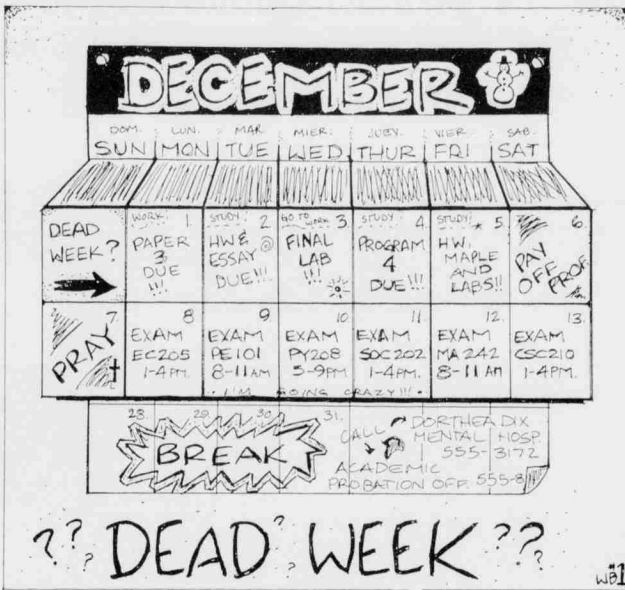 DECEMBER
DOM. LUN. MAR. MIER. JUEV. VIER. SAB.
SUN MON TUE WED THUR FRI SAT
DEAD
WEEK?
WORK. 1.
PAPER
3
DUE
!!!
STUDY. 2
HW &
ESSAY
DUE!!!
GO TO WORK 3
FINAL
LAB
!!!
STUDY. 4.
PROGRAM
4
DUE!!!
STUDY. 5.
HW,
MAPLE
AND
LABS!!
6.
PAY
OFF
PROF.
7.
PRAY
8
EXAM
EC205
1-4PM.
9
EXAM
PE101
8-11AM
10.
EXAM
PY208
5-9PM
11.
EXAM
SOC202
1-4PM.
12.
EXAM
MA242
8-11AM
13.
EXAM
CSC210
1-4PM.
I'M GOING CRAZY!!!
28. 29. 30. 31.
BREAK
CALL DORTHEA DIX
MENTAL HOSP.
555-3172
ACADEMIC
PROBATION OFF. 555-8
? ? ? DEAD ? WEEK ? ? ?